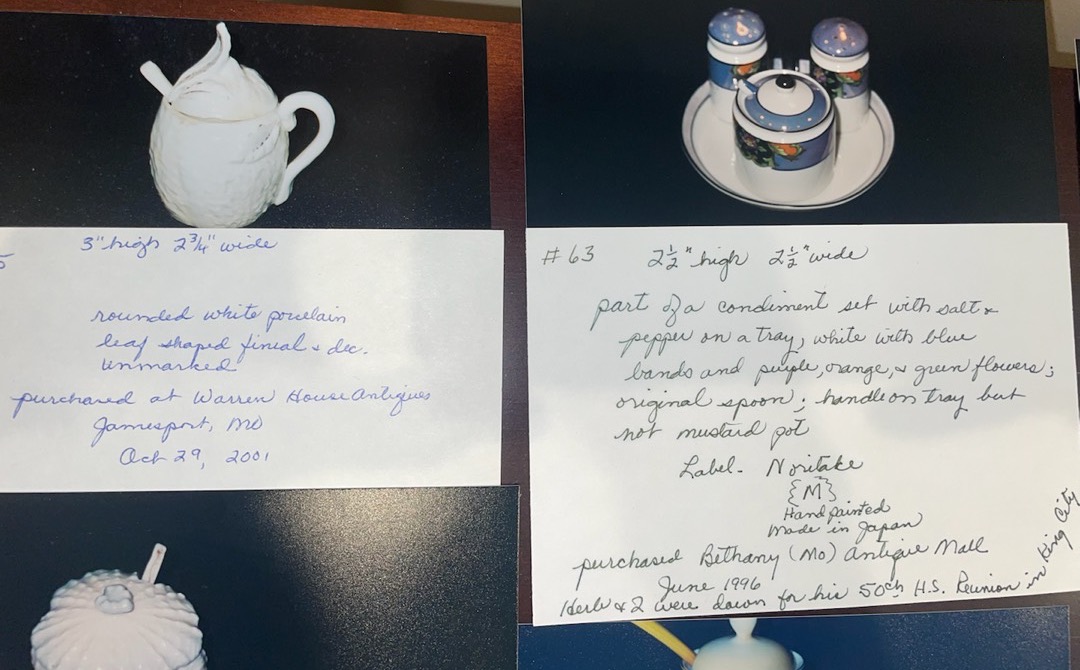 5
3" high 2 3/4" wide
rounded white porcelain
leaf shaped finial & dec.
unmarked
purchased at Warren House Antiques
Jamesport, MO
Oct 29, 2001
# 63 2 1/2" high 2 1/2" wide
part of a condiment set with salt &
pepper on a tray, white with blue
bands and purple, orange, & green flowers;
original spoon; handle on tray but
not mustard pot
Label - Noritake
{M}
Hand painted
Made in Japan
purchased Bethany (Mo) Antique Mall
June 1996
Herb & I were down for his 50th H.S. Reunion in King City